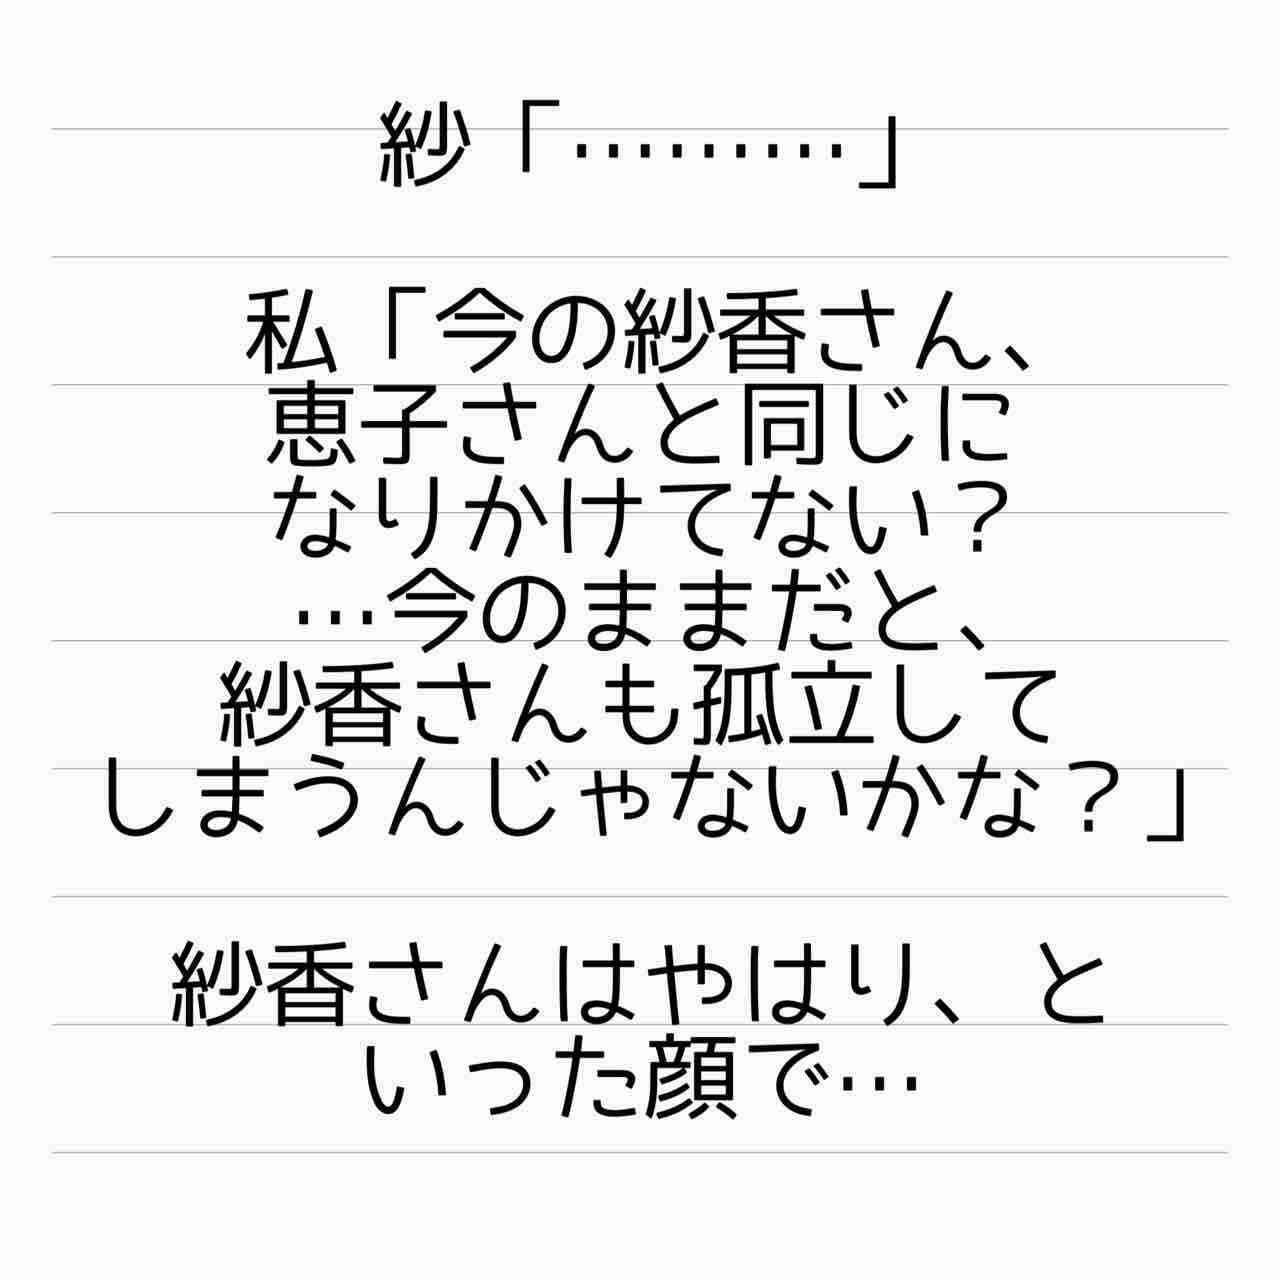 紗「………」
私「今の紗香さん、
恵子さんと同じに
なりかけてない？
…今のままだと、
紗香さんも孤立して
しまうんじゃないかな？」
紗香さんはやはり、と
いった顔で…